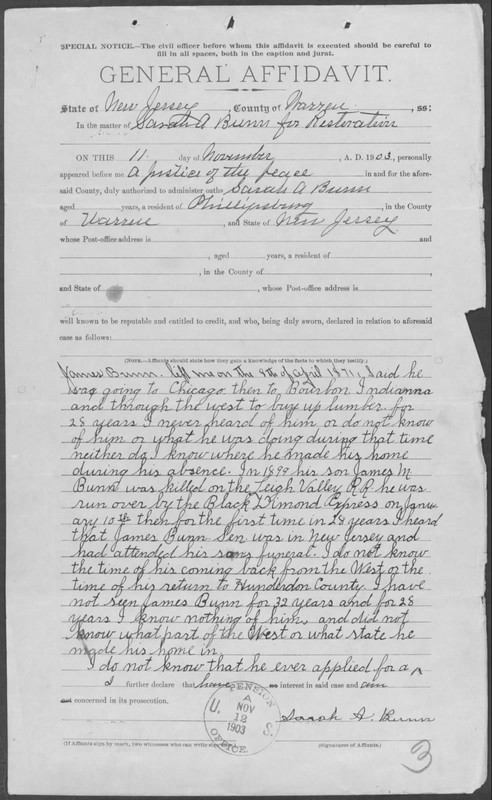 SPECIAL NOTICE.—The civil officer before whom this affidavit is executed should be careful to
fill in all spaces, both in the caption and jurat.
GENERAL AFFIDAVIT.
State of New Jersey, County of Warren, ss:
In the matter of Sarah A Bunn for Restoration
ON THIS 11 day of November, A. D. 1903, personally
appeared before me a justice of the peace in and for the afore-
said County, duly authorized to administer oaths Sarah A Bunn
aged years, a resident of Phillipsburg, in the County
of Warren, and State of New Jersey
whose Post-office address is and
, aged years, a resident of
, in the County of ,
and State of , whose Post-office address is
well known to be reputable and entitled to credit, and who, being duly sworn, declared in relation to aforesaid
case as follows:
(NOTE.—Affiants should state how they gain a knowledge of the facts to which they testify.)
James Bunn. left me on the 8th of April 1871, Said he
was going to Chicago then to Bourbon Indianna
and through the west to buy up lumber for
28 years I never heard of him or do not know
of him or what he was doing during that time
neither do I know where he made his home
during his absence. In 1899 his son James M.
Bunn was killed on the Leigh Valley R.R. he was
run over by the Black Dimond Express on Janu-
ary 10th then for the first time in 28 years I heard
that James Bunn Sen was in New Jersey and
had attended his sons funeral. I do not know
the time of his coming back from the West or the
time of his return to Hunderdon County I have
not seen James Bunn for 32 years and for 28
years I know nothing of him and did not
know what part of the West or what state he
made his home in.
I do not know that he ever applied for a ^
I further declare that have no interest in said case and am
not concerned in its prosecution.
PENSION
A
U. NOV S.
12
1903
OFFICE.
Sarah A. Bunn
(If Affiants sign by mark, two witnesses who can write sign
(Signatures of Affiants.)
3